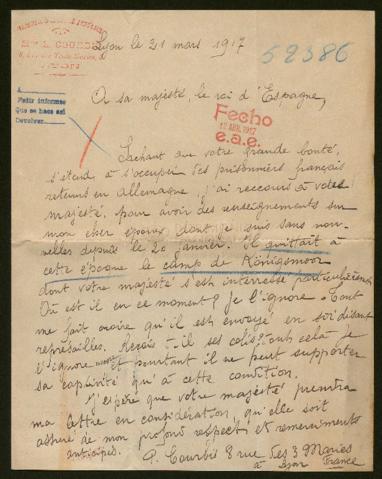 Lyon le 21 mars 1917
52386
A sa majesté, le roi d'Espagne,
Petit informe
Que se hace así
Devolver
Fecho
ABR. 1917
e.a.e.
Sachant que votre grande bonté,
s'étend à s'occuper des prisonniers français
retenus en Allemagne, j'ai recours à votre
majesté, pour avoir des renseignements sur
mon cher époux dont je suis sans nou-
velles depuis le 20 janvier. Il quittait à
cette époque le camp de Königsmoor
dont votre majesté s'est interressé particulièrement
Où est il en ce moment? je l'ignore. Tout
me fait croire qu'il est envoyé en soi disant
représailles. Reçoit-il ses colis? cela je
l'ignore pourtant il ne peut supporter
sa captivité qu'à cette condition.
J'espère que votre majesté prendra
ma lettre en considération, qu'elle soit
assuré de mon profond respect et remerciments
anticipés. P. Courbis 8 rue des 3 Maries
à Lyon France